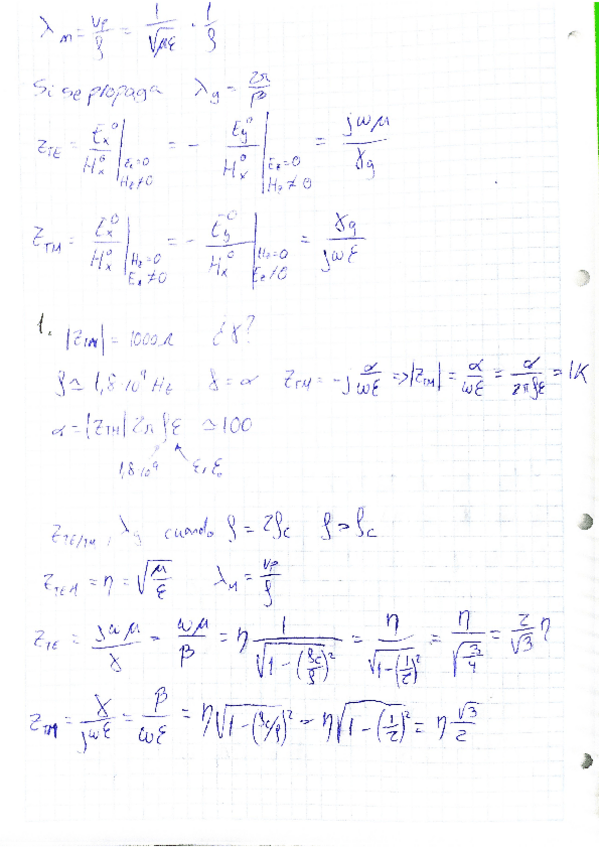 λ_m = vp/f = 1/√με · 1/f
Si se propaga λ_g = 2π/β
Z_TE = E_x^0/H_x^0 |_{E_z=0 H_z≠0} = - E_y^0/H_x^0 |_{E_z=0 H_z≠0} = jωμ/γ_g
Z_TM = E_x^0/H_x^0 |_{H_z=0 E_z≠0} = - E_y^0/H_x^0 |_{H_z=0 E_z≠0} = γ_g/jωε
1. |Z_TM| = 1000 Ω ¿γ?
f ≃ 1,8·10^9 Hz γ = α Z_TM = -j α/ωε => |Z_TM| = α/ωε = α/2πfε = 1K
α = |Z_TM| 2π f ε ≃ 100
1,8·10^9 ε_r ε_0
Z_TE/TM, λ_g cuando f = 2f_c f > f_c
Z_TEM = η = √(μ/ε) λ_M = vp/f
Z_TE = jωμ/γ = ωμ/β = η 1/√(1-(f_c/f)²) = η/√(1-(1/2)²) = η/√(3/4) = 2/√3 η
Z_TM = γ/jωε = β/ωε = η√(1-(f_c/f)²) = η√(1-(1/2)²) = η √3/2